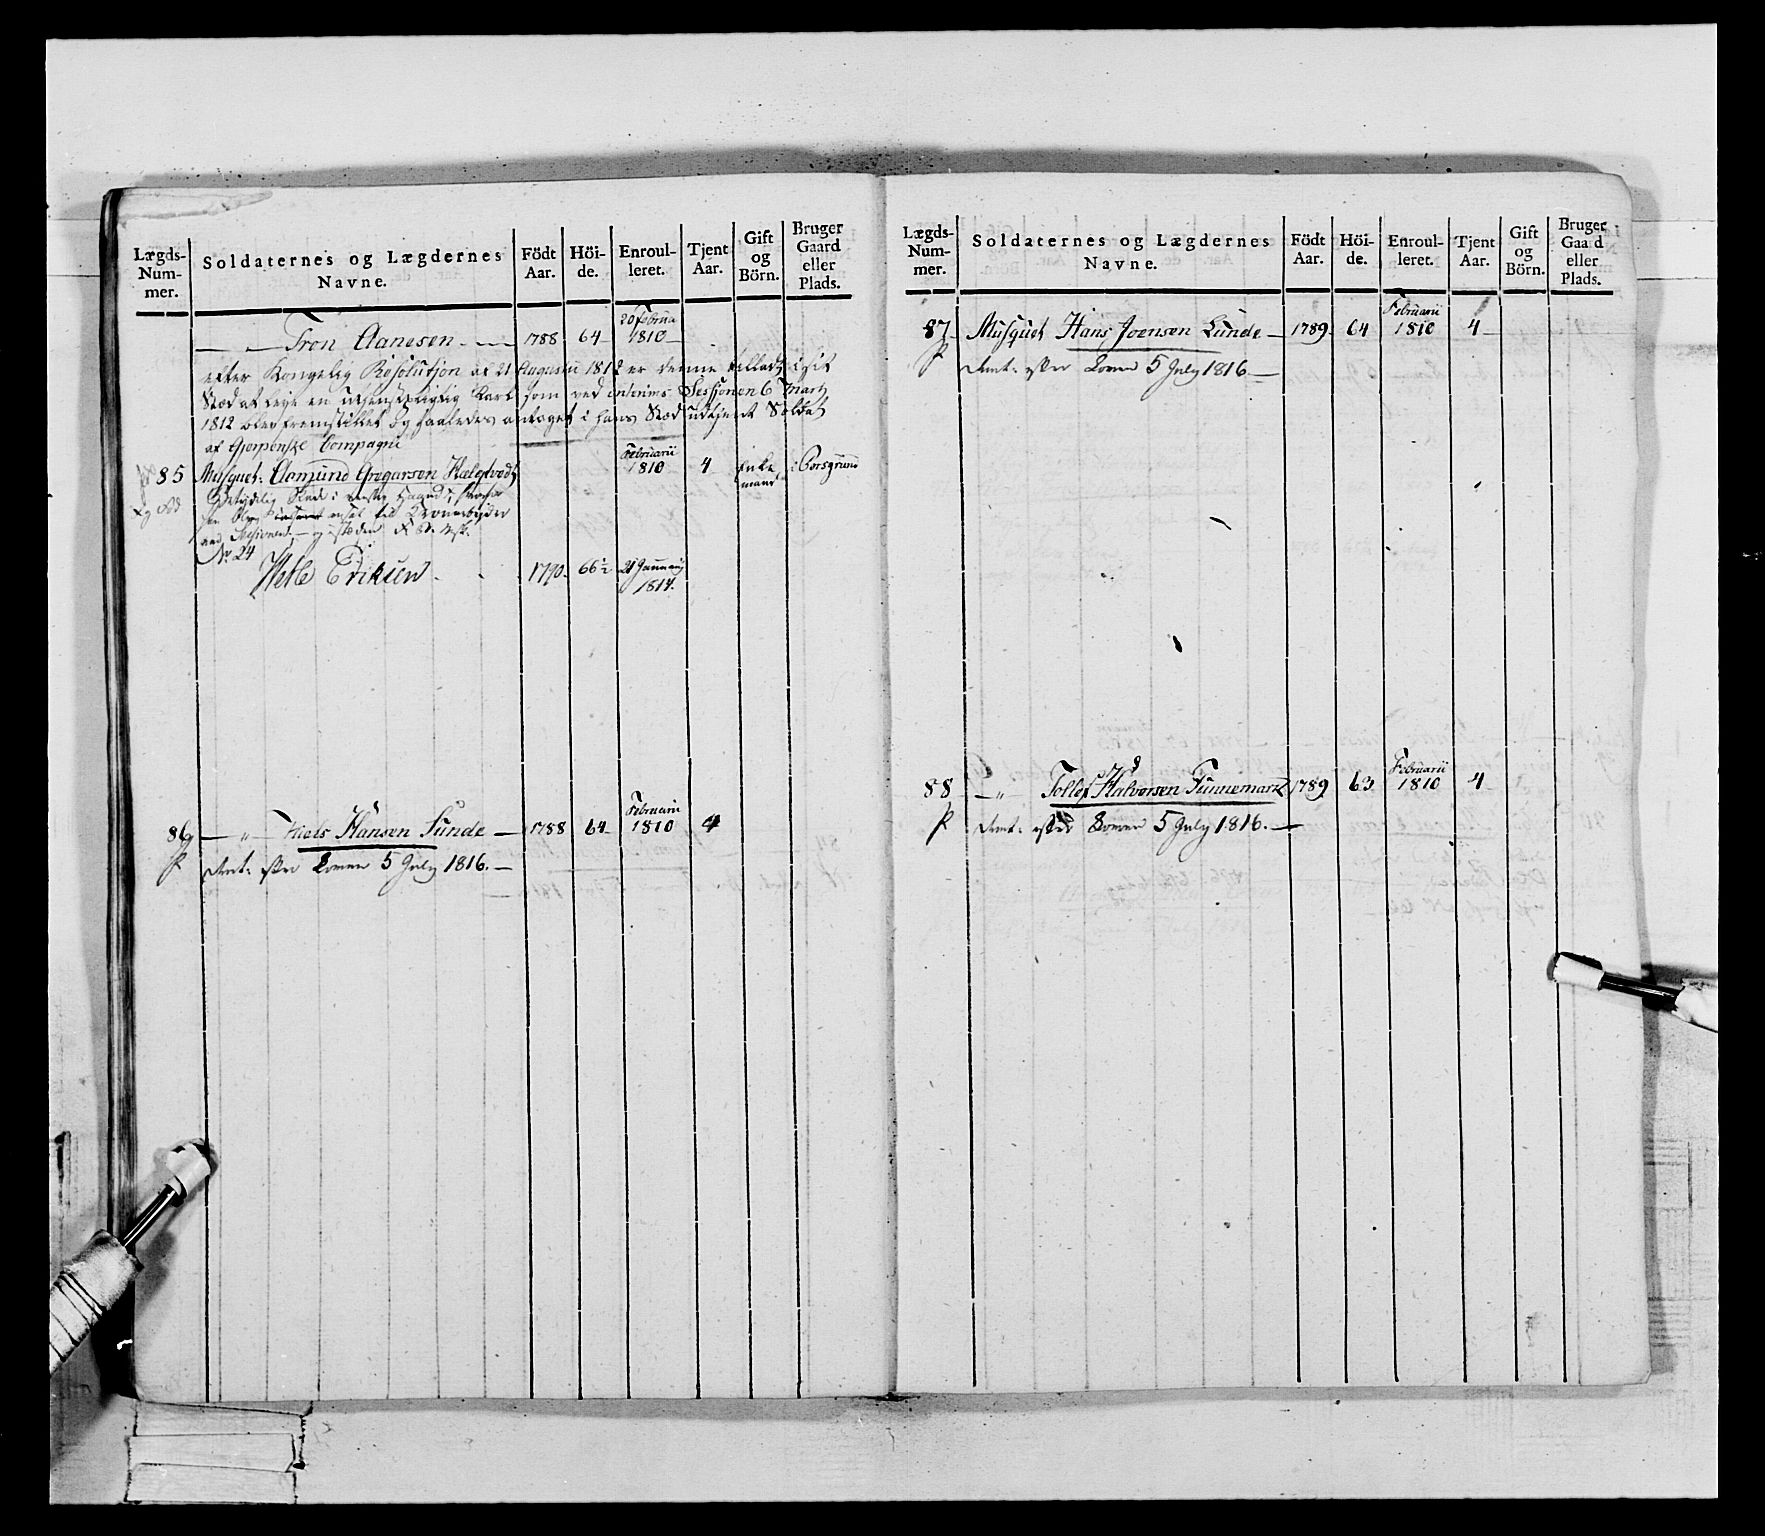 Lægds-Num-mer. Soldaternes og Lægdernes Navne. Födt Aar. Höi-de. Enroul-leret. Tjent Aar. Gift og Börn. Bruger Gaard eller Plads.
— — Tron Aanesen — 1788 64 20 Februa 1810
efter Kongelig Resolution af 21 Augusti 1812 er denne tilladt i sit
Stæd at leje en utjenstpligtig Karl som ved interims Sessionen 6 Marty
1812 blev fremstillet og saaledes antaget i hans Stæd udtjent Soldat
af Gjerpenske Compagni
85 Musquet: Asmund Gregarsen Februarii 1810 4 Enke mand i Porsgrund
Betydelig Skade i venstre Haand,
No 24
Hetle Eriksen 1790 66½ 21 Januarij 1814.
86 — " — Niels Hansen Sunde — 1788 64 Februarii 1810 4
P Amt: efter Loven 5 July 1816. —
Lægds-Num-mer. Soldaternes og Lægdernes Navne. Födt Aar. Höi-de. Enroul-leret. Tjent Aar. Gift og Börn. Bruger Gaard eller Plads.
87 Musquet Hans Joensen Lunde — 1789 64 Februarii 1810 4
P Amt: efter Loven 5 July 1816. —
88 — " — Tollef Halvorsen Funnemark 1789 63 Februarii 1810 4
P Amt: efter Loven 5 July 1816. —